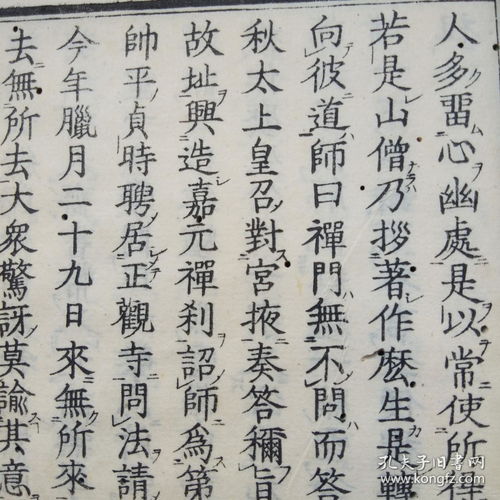 人多畱心幽處是以常使所
若是山僧乃拶著作麽生毘轉
向彼道師曰禪門無不問而答
秋太上皇召對宮掖奏答稱旨
故址興造嘉元禪刹詔師為第
帥平貞時聘居正觀寺問法請
今年臘月二十九日來無所來
去無所去大衆驚訝莫諭其意
孔夫子旧书网
www.kongfz.com